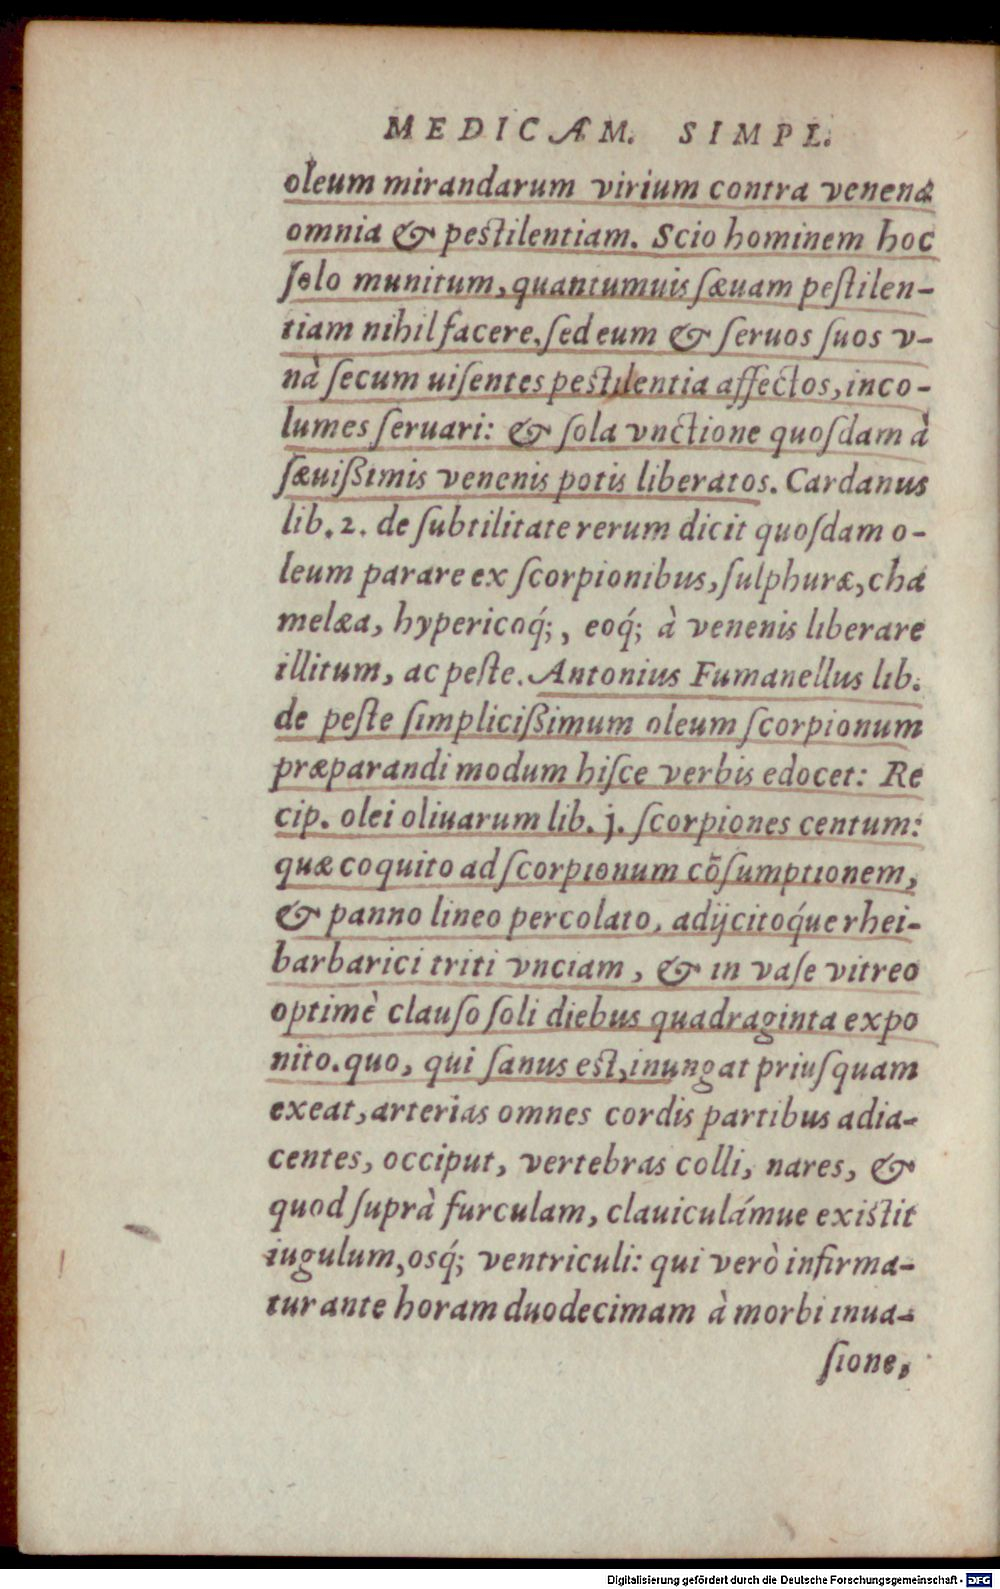 MEDICAM. SIMPL.
oleum mirandarum virium contra venena
omnia & pestilentiam. Scio hominem hoc
ſolo munitum, quantumuis ſæuam peſtilen-
tiam nihil facere, ſed eum & ſeruos ſuos v-
nà ſecum uiſentes pestilentia affectos, inco-
lumes ſeruari: & ſola vnctione quoſdam à
ſæuißimis venenis potis liberatos. Cardanus
lib. 2. de ſubtilitate rerum dicit quoſdam o-
leum parare ex ſcorpionibus, ſulphuræ, cha
melæa, hypericoq́;, eoq́; à venenis liberare
illitum, ac peſte. Antonius Fumanellus lib.
de peſte ſimplicißimum oleum ſcorpionum
præparandi modum hiſce verbis edocet: Re
cip. olei oliuarum lib. j. ſcorpiones centum:
quæ coquito ad ſcorpionum cōſumptionem,
& panno lineo percolato, adijcitoq́ue rhei-
barbarici triti vnciam, & in vaſe vitreo
optimè clauſo ſoli diebus quadraginta expo
nito. quo, qui ſanus est, inungat priuſquam
exeat, arterias omnes cordis partibus adia-
centes, occiput, vertebras colli, nares, &
quod ſuprà furculam, clauiculámue existit
iugulum, osq́; ventriculi: qui verò infirma-
tur ante horam duodecimam à morbi inua-
ſione,
Digitalisierung gefördert durch die Deutsche Forschungsgemeinschaft - DFG